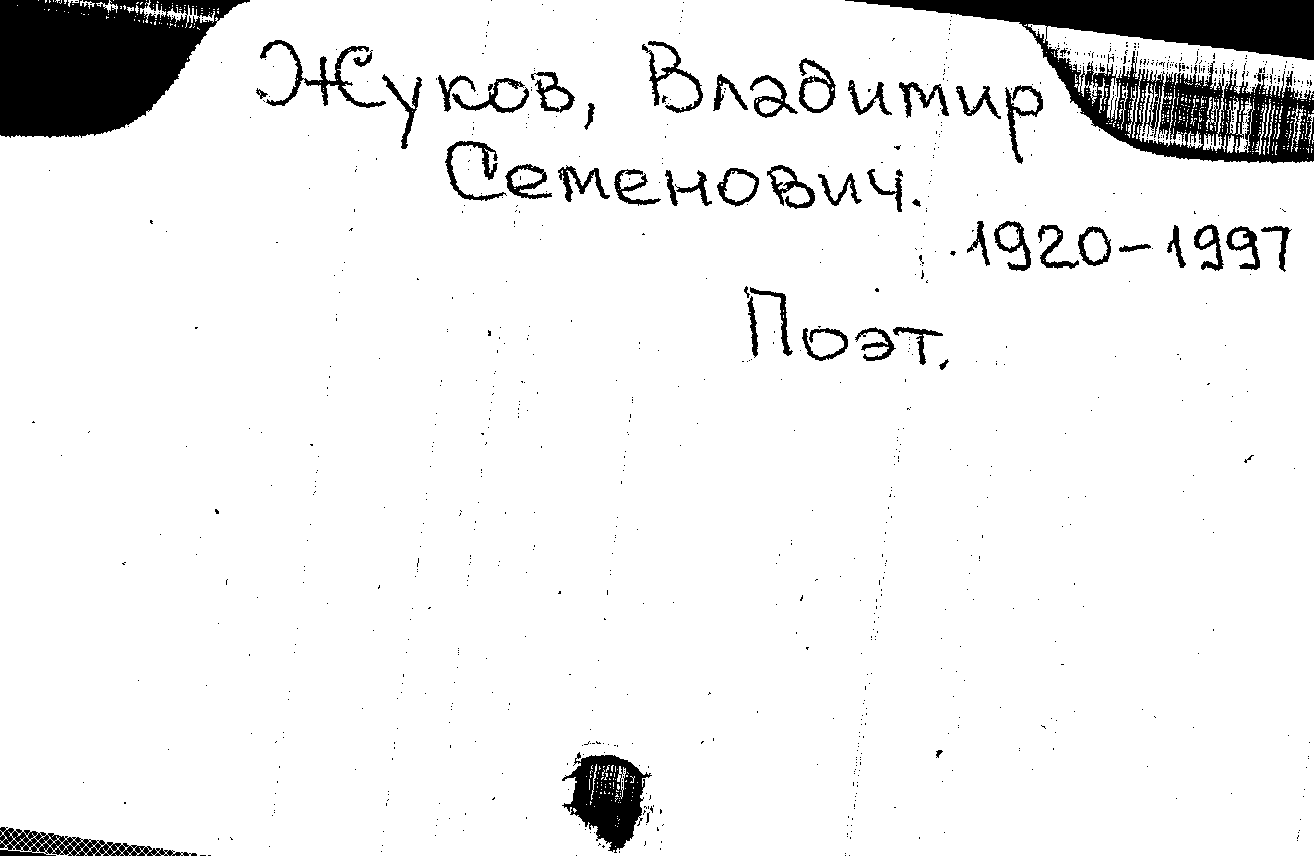 Жуков, Владимир
Семенович.
1920-1997
Поэт.